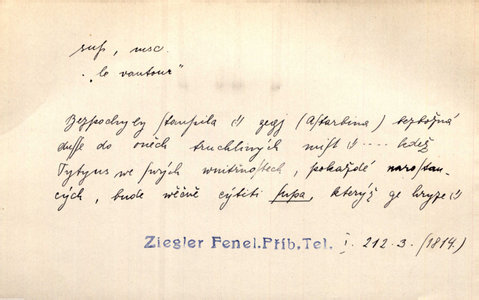 sup, msc.
"le vautour"
Bezpochyby staupila (:) gegj (Astarbina) bezbožná
dusse do oněch truchliwých mjst (:) .... kdež
Tytyus we swých wnitřnostech, pokaždé narostau-
cých, bude wěčně cýtiti supa, kterýž ge hryze (:)
Ziegler Fenel.Příb.Tel. I. 212.3. (1814.)